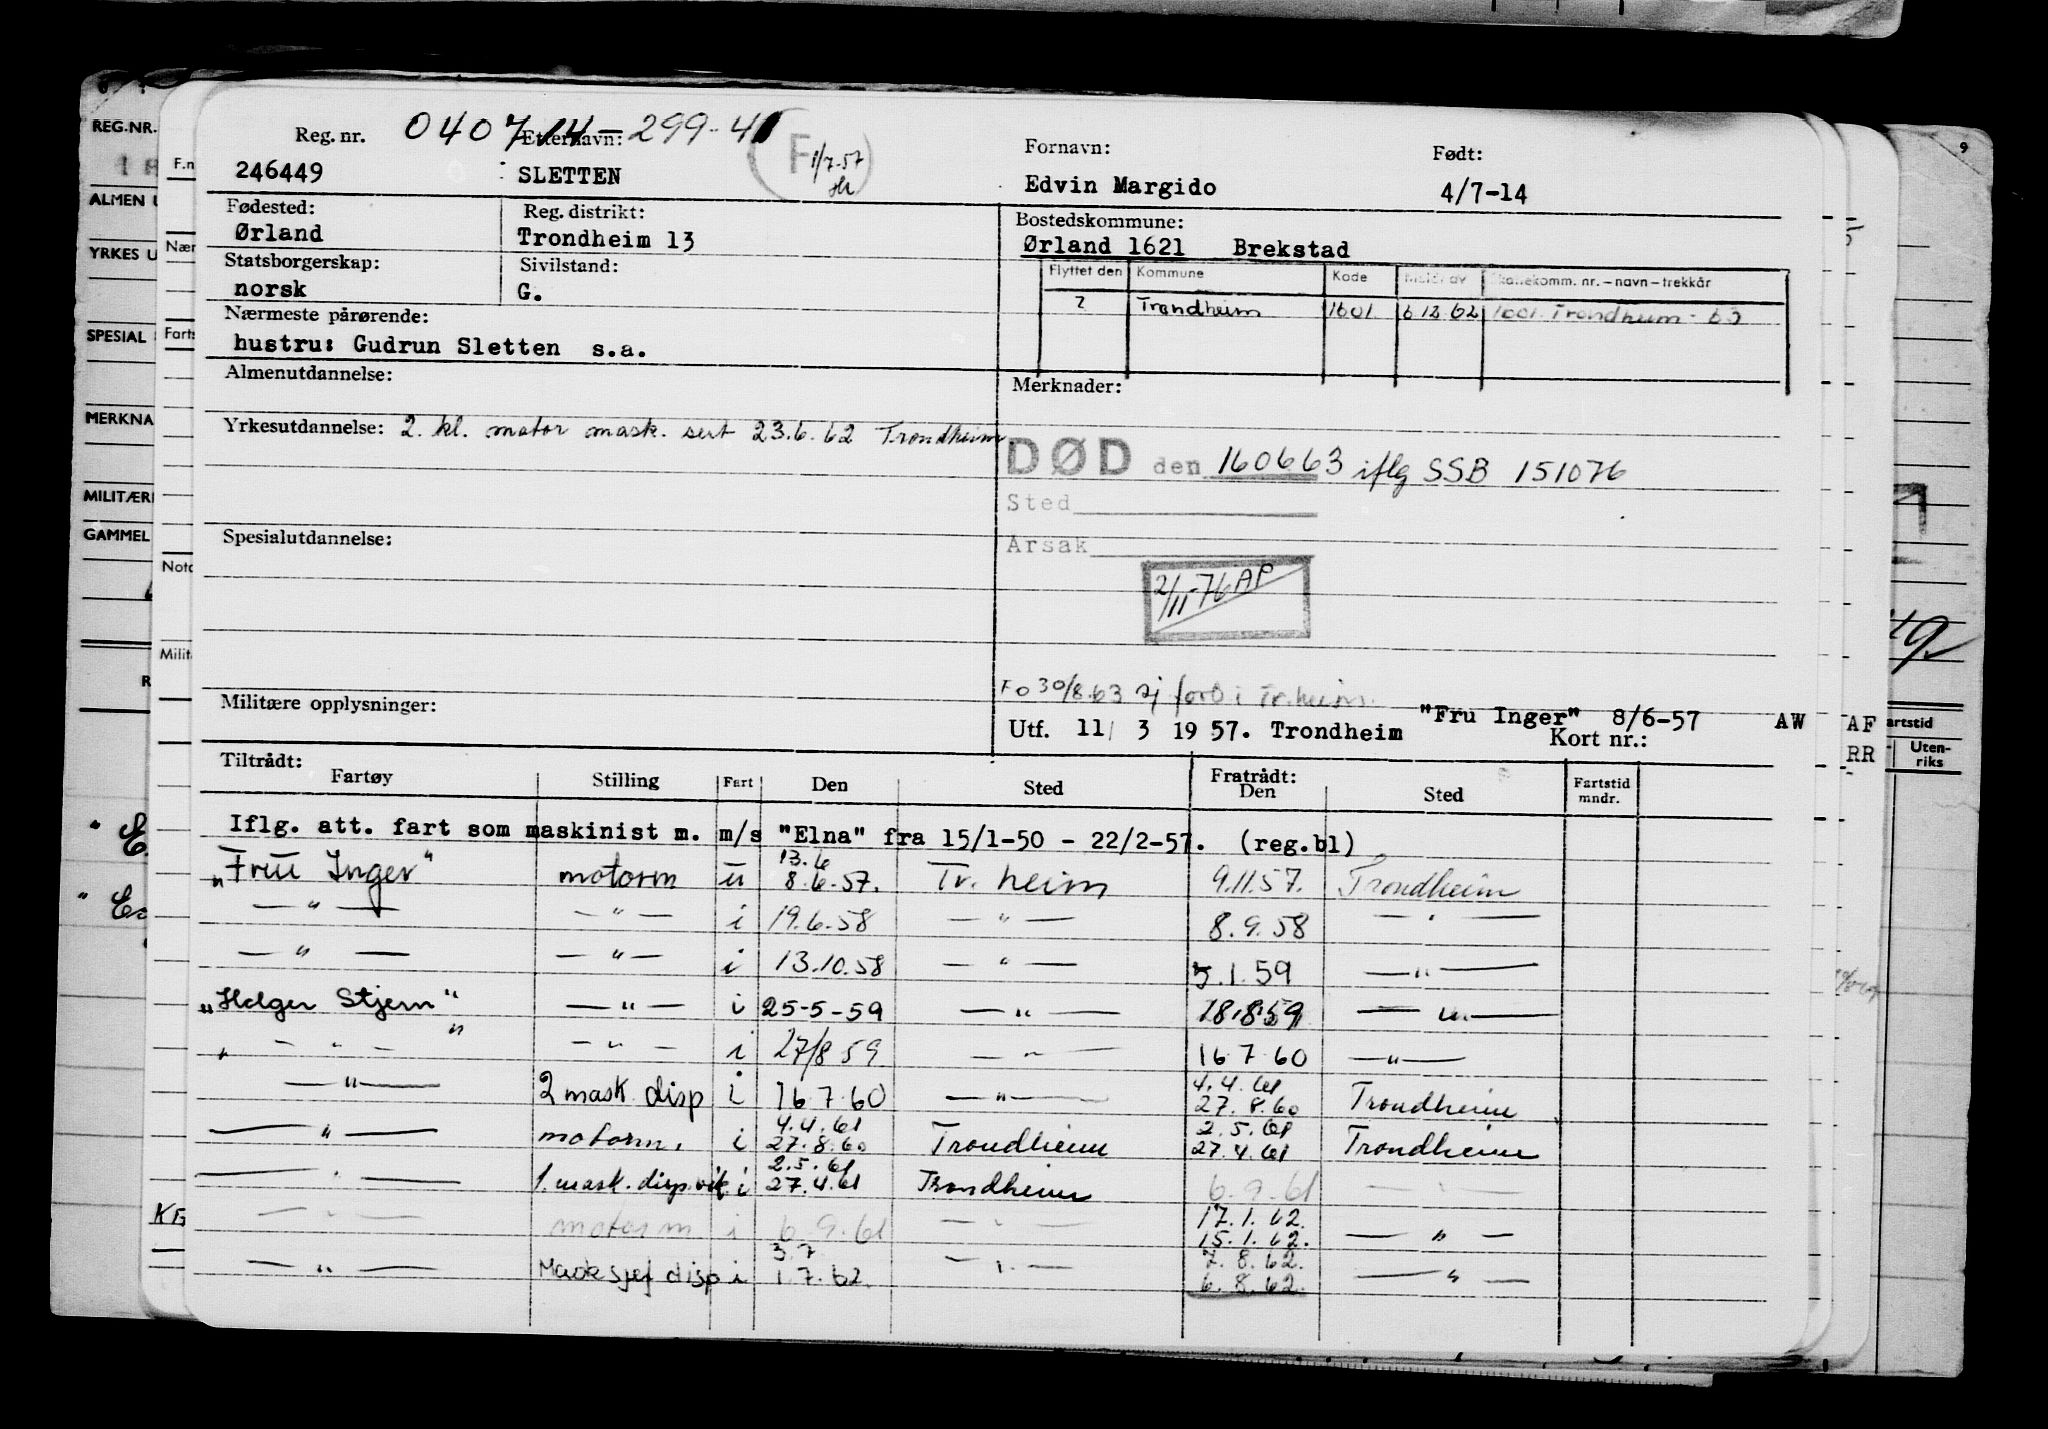 Reg. nr. 040714-299-41 Etternavn: Fornavn: Født:
246449 SLETTEN F 1/7-57 Edvin Margido 4/7-14
Fødested: Reg. distrikt: Bostedskommune:
Ørland Trondheim 13 Ørland 1621 Brekstad
Statsborgerskap: Sivilstand: Flyttet den Kommune Kode Meld. av Skattekomm. nr. – navn – trekkår
norsk G. ? Trondheim 1601 6 12 62 1601 Trondheim - 63
Nærmeste pårørende:
hustru: Gudrun Sletten s.a.
Almenutdannelse: Merknader:
Yrkesutdannelse: 2. kl. motor mask. sert 23.6.62 Trondheim
DØD den 160663 iflg SSB 151076
Sted
Årsak
Spesialutdannelse:
2/11-76 AP
Fo 30/8.63 i Tr.heim.
Militære opplysninger:
Utf. 11/ 3 1957. Trondheim "Fru Inger" 8/6-57 AW
Kort nr.:
Tiltrådt: Fratrådt:
Fartøy Stilling Fart Den Sted Den Sted Fartstid mndr.
Iflg. att. fart som maskinist m. m/s "Elna" fra 15/1-50 - 22/2-57. (reg.bl)
13.6
„Fru Inger" motorm u 8.6.57. Tr.heim 9.11.57. Trondheim
— " — — " — i 19.6.58 — " — 8.9.58 — " —
— " — — " — i 13.10.58 — " — 5.1.59 — " —
„Helger Stjern" — " — i 25-5-59 — " — 18.8.59 — " —
„ — " — " — " — i 27/8 59 — " — 16.7.60 — " —
4.4.61
— " — 2 mask disp i 16.7.60 — " — 27.8.60 Trondheim
4.4.61 2.5.61
— " — motorm. i 27.8.60 Trondheim 27.4.61 Trondheim
2.5.61
— " — 1. mask. disp. i 27.4.61 Trondheim 6.9.61 — " —
17.1.62.
— " — motorm i 6.9.61 — " — 15.1.62. — " —
3.7 7.8.62.
— " — Masksjef disp i 1.7.62. — " — 6.8.62. — " —
REG.NR.
ALMEN U
YRKES U
SPESIAL
MERKNA
MILITÆRE
GAMMEL
F.n
Nær
Farts
Noto
Milit
R
KG
9
AF
RR
artstid
Uten-
riks